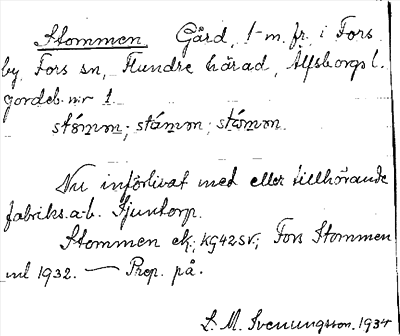 Stommen. Gård, 1 m. fr. i Fors
by, Fors sn, Flundre härad, Älfsborgs l.
jordeb. nr 1.
stómmən; stámən; stəmən.
Nu införlivat med eller tillhörande
fabriks.a-b. Sjuntorp.
Stommen ek; kg42SV; Fors Stommen
ml 1932. — Prep. på.
S. M. Svenungsson. 1934